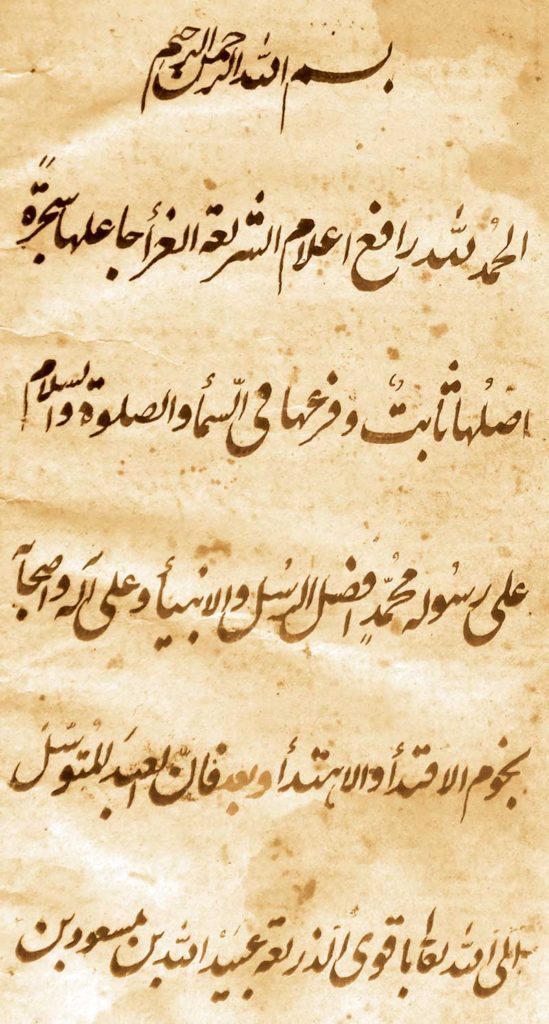 بسم الله الرحمن الرحيم
الحمْد لله رافع اعلام الشريعة الغرأ جاعلها شجرةً
اصْلها ثابتٌ وفرعها فى السّمأ والصلوة والسلام
على رسُوله محُمّدٍ افضل الرسُل والانبيأ وعلى آله واصحابه
نجوم الاقتدأ والاهتدأ وبعد فانّ العبدَ المتُوسّلَ
الى الله تعالى باقوى الذريعة عبيْد الله بن مسعود بن